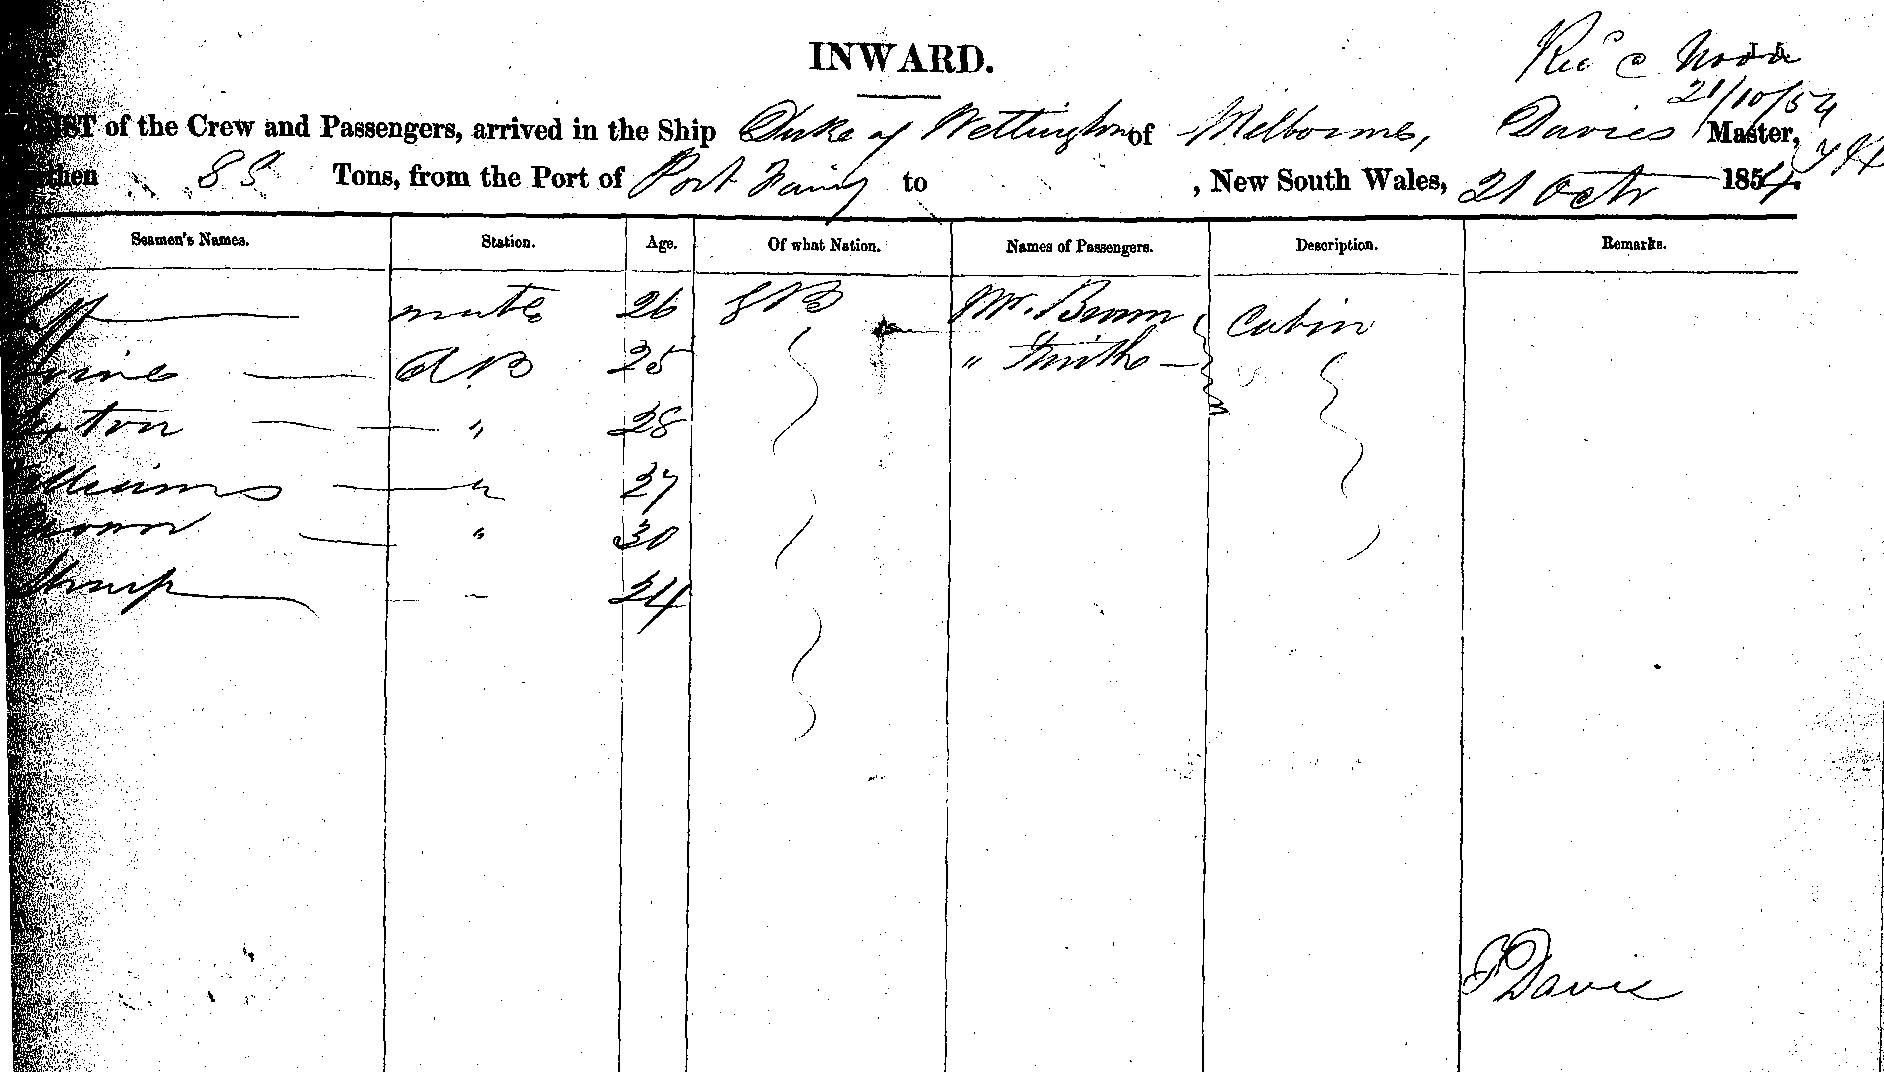 INWARD.
21/10/54
LIST of the Crew and Passengers, arrived in the Ship Duke of Wellington of Melbourne, Davies Master,
Burthen Tons, from the Port of Port Fairy to , New South Wales, 21 Octr 1854.
Seamen's Names. Station. Age. Of what Nation. Names of Passengers. Description. Remarks.
mate 26 G B Mr. Brown Cabin
A.B 25 " Smith
" 28
Williams " 27
Brown " 30
Sharp 24
J Davis